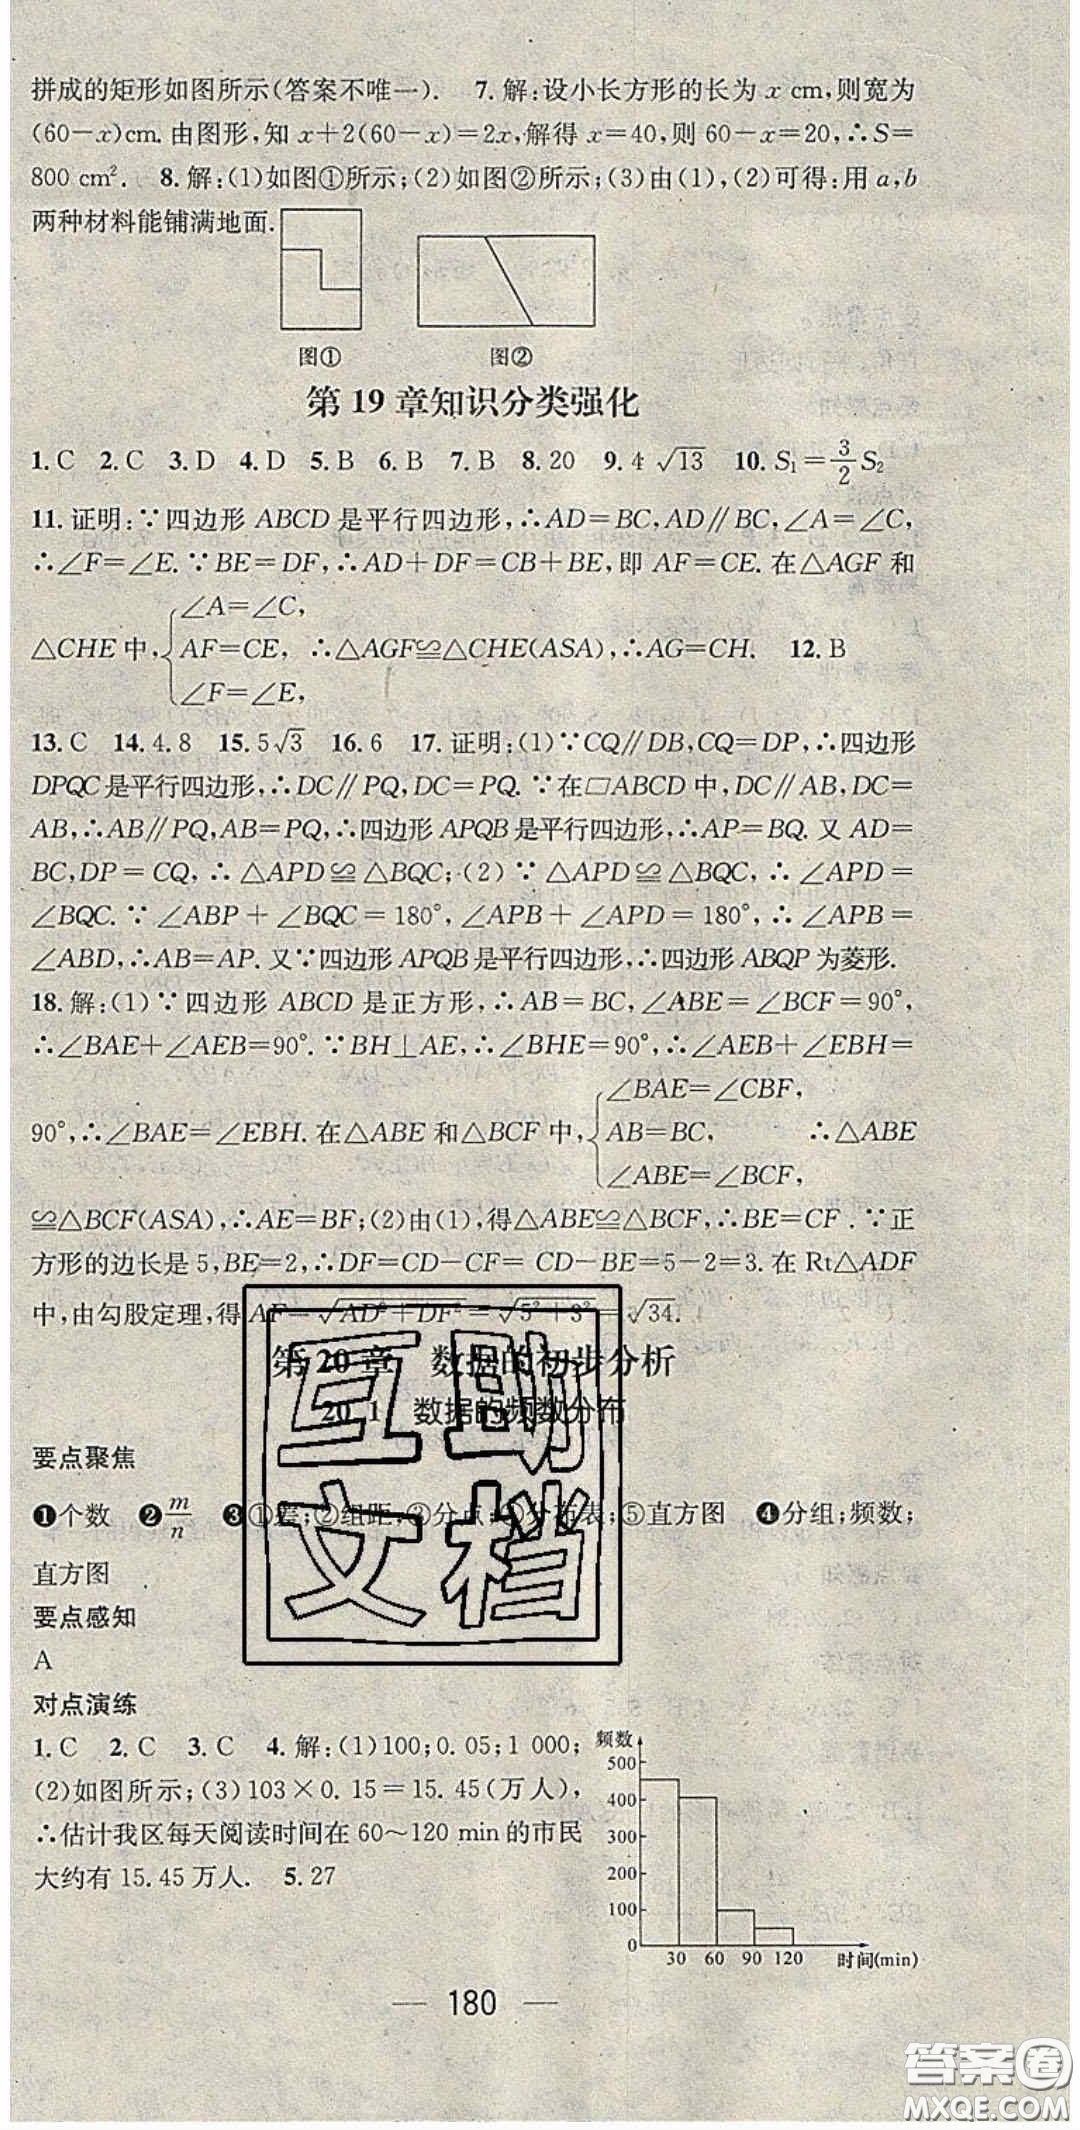 拼成的矩形如图所示(答案不唯一). 7.解:设小长方形的长为 x cm,则宽为
(60－x)cm. 由图形,知 x＋2(60－x)＝2x,解得 x＝40,则 60－x＝20,∴S＝
800 cm². 8.解:(1)如图①所示;(2)如图②所示;(3)由(1),(2)可得:用 a,b
两种材料能铺满地面.
图① 图②
第 19 章知识分类强化
1.C 2.C 3.D 4.D 5.B 6.B 7.B 8.20 9.4 √13 10.S₁＝3/2 S₂
11.证明:∵四边形 ABCD 是平行四边形,∴AD＝BC,AD∥BC,∠A＝∠C,
∴∠F＝∠E.∵BE＝DF,∴AD＋DF＝CB＋BE,即 AF＝CE. 在△AGF 和
∠A＝∠C,
△CHE 中, AF＝CE, ∴△AGF≌△CHE(ASA),∴AG＝CH. 12.B
∠F＝∠E,
13.C 14.4.8 15.5√3 16.6 17.证明:(1)∵CQ∥DB,CQ＝DP,∴四边形
DPQC是平行四边形,∴DC∥PQ,DC＝PQ.∵在▱ABCD 中,DC∥AB,DC＝
AB,∴AB∥PQ,AB＝PQ,∴四边形 APQB是平行四边形,∴AP＝BQ. 又 AD＝
BC,DP＝CQ,∴△APD≌△BQC;(2)∵△APD≌△BQC,∴∠APD＝
∠BQC.∵∠ABP＋∠BQC＝180°,∠APB＋∠APD＝180°,∴∠APB＝
∠ABD,∴AB＝AP. 又∵四边形 APQB是平行四边形,∴四边形 ABQP 为菱形.
18.解:(1)∵四边形 ABCD 是正方形,∴AB＝BC,∠ABE＝∠BCF＝90°,
∴∠BAE＋∠AEB＝90°.∵BH⊥AE,∴∠BHE＝90°,∴∠AEB＋∠EBH＝
∠BAE＝∠CBF,
90°,∴∠BAE＝∠EBH. 在△ABE 和△BCF 中, AB＝BC, ∴△ABE
∠ABE＝∠BCF,
≌△BCF(ASA),∴AE＝BF;(2)由(1),得△ABE≌△BCF,∴BE＝CF.∵正
方形的边长是 5,BE＝2,∴DF＝CD－CF＝CD－BE＝5－2＝3. 在 Rt△ADF
中,由勾股定理,得 AF＝√(AD²＋DF²)＝√(5²＋3²)＝√34.
第 20 章 数据的初步分析
20.1 数据的频数分布
要点聚焦
❶个数 ❷m/n ❸①差;②组距;③分点;④分布表;⑤直方图 ❹分组;频数;
直方图
要点感知
A
对点演练
1.C 2.C 3.C 4.解:(1)100;0.05;1 000;
(2)如图所示;(3)103×0.15＝15.45(万人),
∴估计我区每天阅读时间在 60～120 min 的市民
大约有 15.45 万人. 5.27
频数
500
400
300
200
100
0
30 60 90 120 时间(min)
— 180 —
互助
文档
答案圈
MXQE.COM